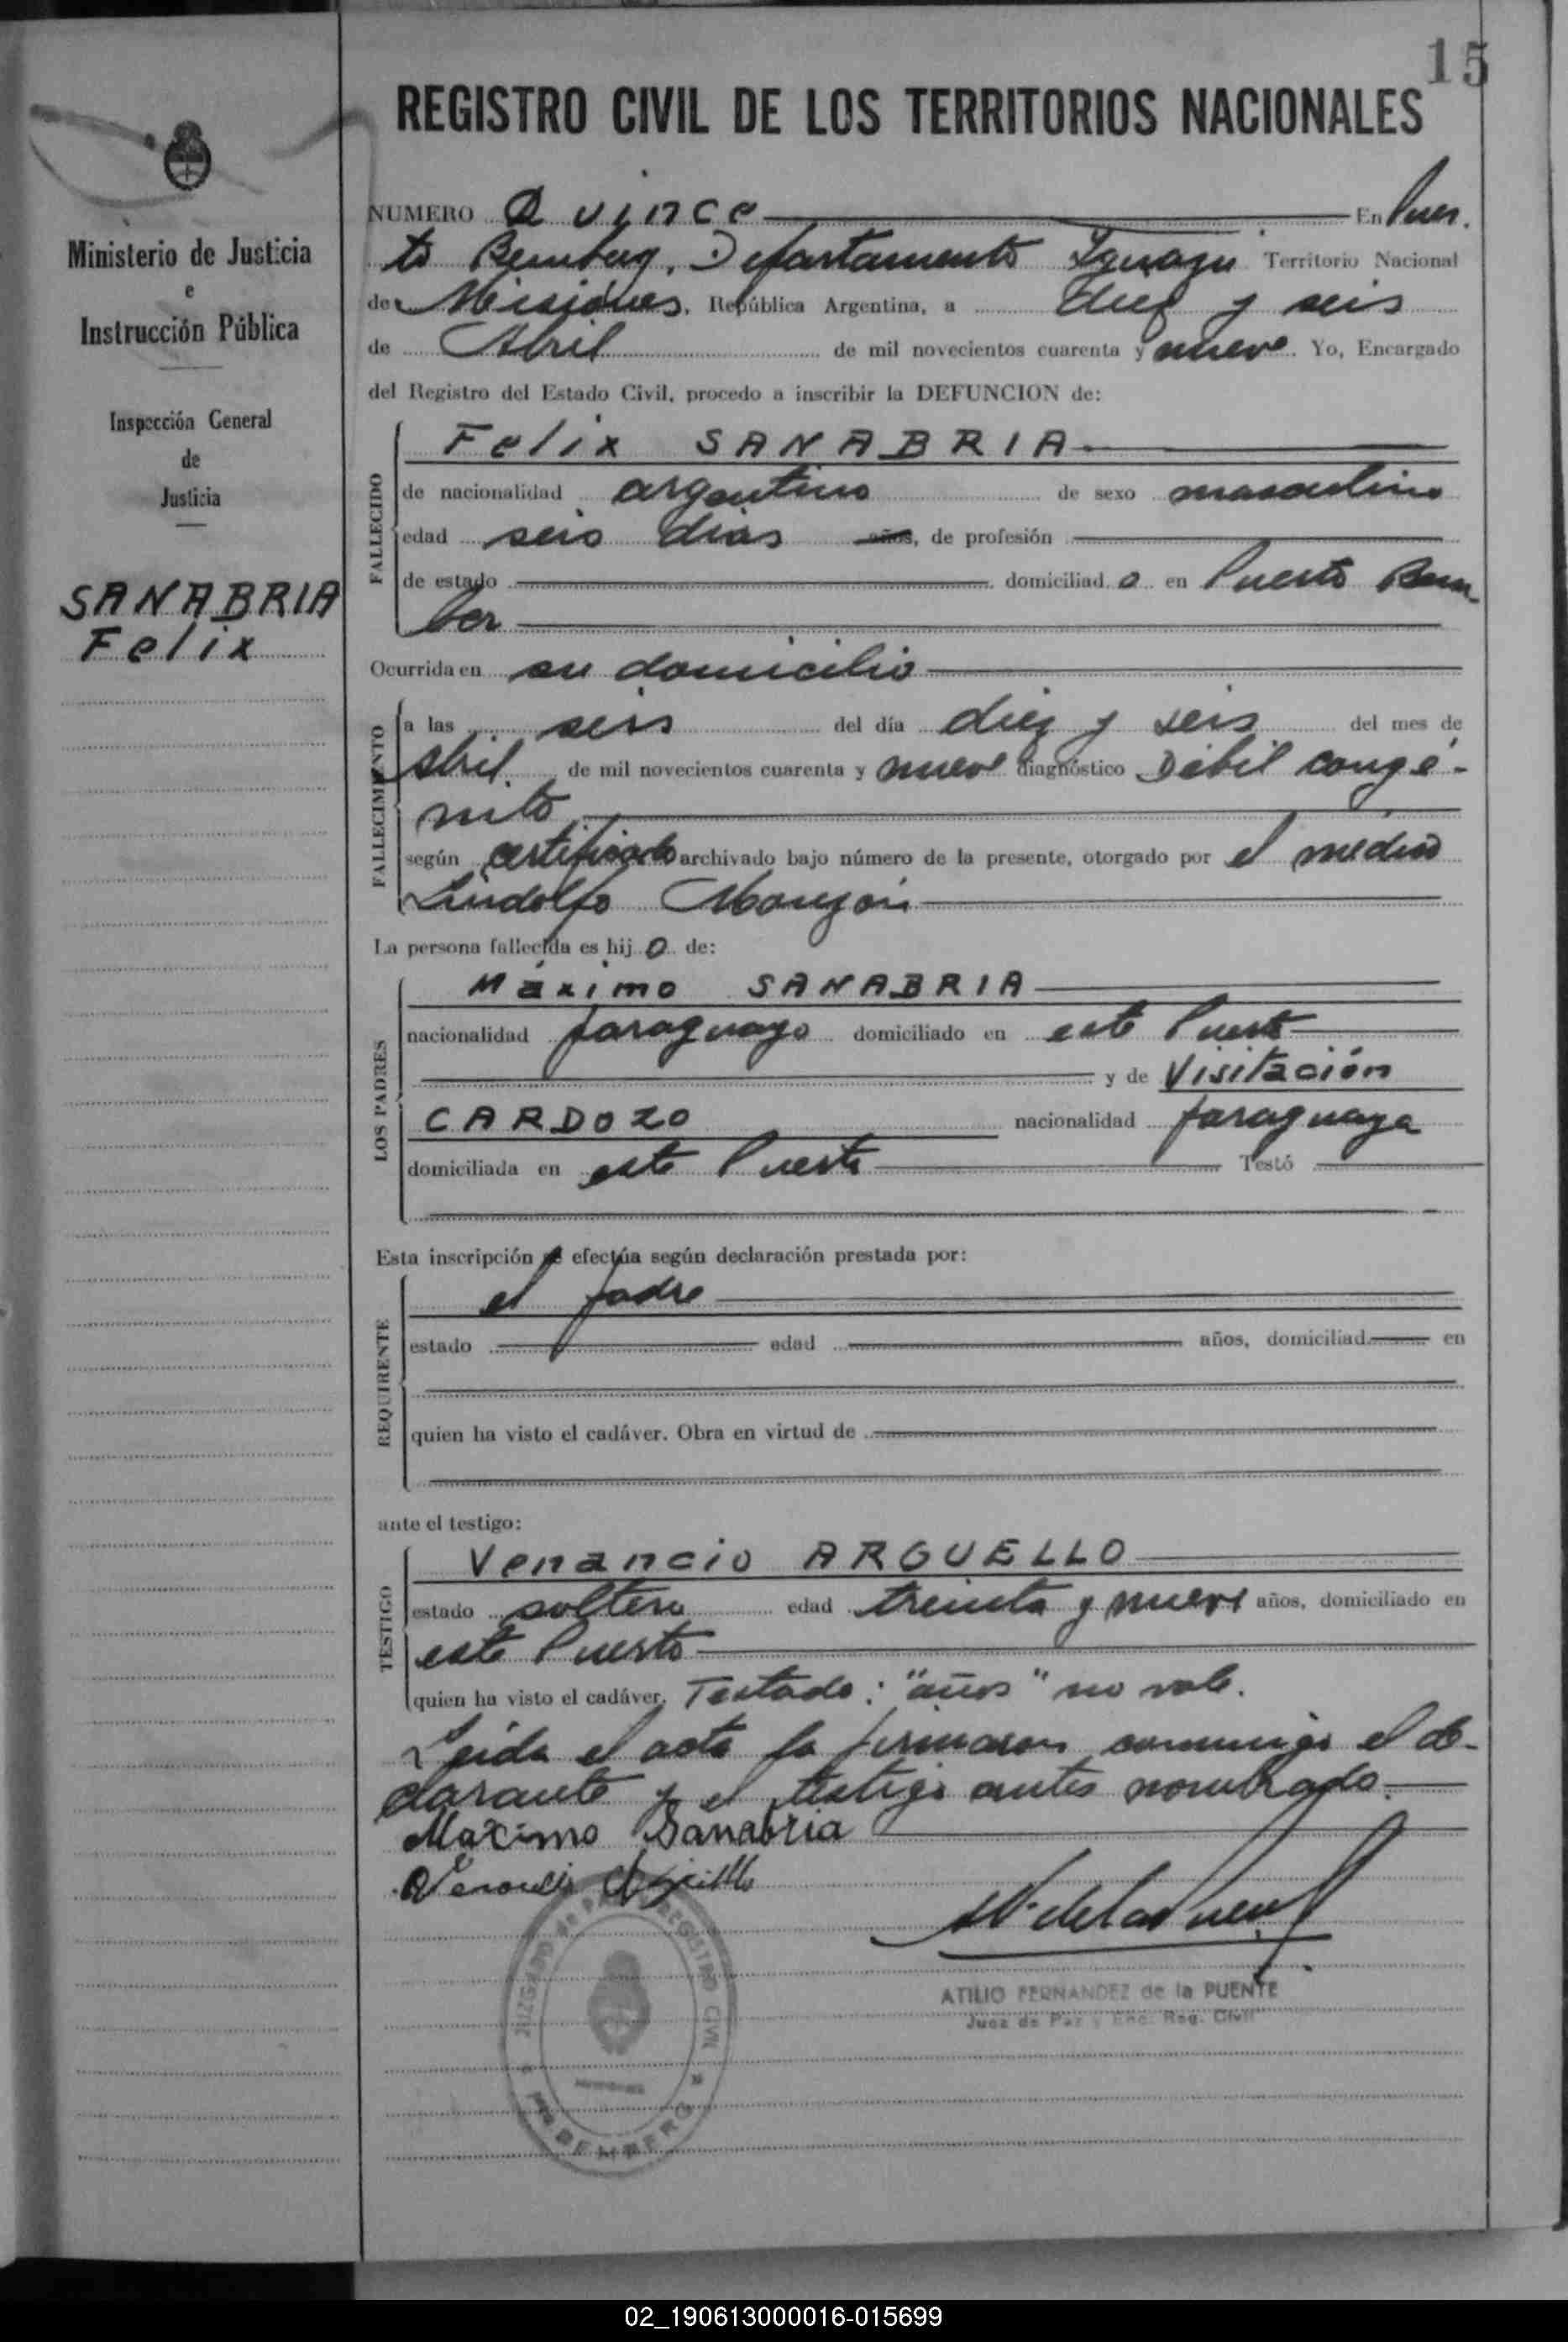 15
REGISTRO CIVIL DE LOS TERRITORIOS NACIONALES
Ministerio de Justicia
e
Instrucción Pública
Inspección General
de
Justicia
SANABRIA
Felix
NUMERO Quince En Puer.
to Bemberg, Departamento Iguazu Territorio Nacional
de Misiones, República Argentina, a diez y seis
de Abril de mil novecientos cuarenta y nueve. Yo, Encargado
del Registro del Estado Civil, procedo a inscribir la DEFUNCION de:
FALLECIDO
Felix SANABRIA
de nacionalidad argentino de sexo masculino
edad seis dias años, de profesión
de estado domiciliad o en Puerto Bem
ber
Ocurrida en su domicilio
FALLECIMIENTO
a las seis del día diez y seis del mes de
Abril de mil novecientos cuarenta y nueve diagnóstico Débil congé-
nito
según certificado archivado bajo número de la presente, otorgado por el médico
Lindolfo Monzón
La persona fallecida es hij o de:
LOS PADRES
Máximo SANABRIA
nacionalidad paraguayo domiciliado en este Puerto
y de Visitación
CARDOZO nacionalidad paraguaya
domiciliada en este Puerto Testó
Esta inscripción se efectúa según declaración prestada por:
REQUIRENTE
el padre
estado edad años, domiciliad en
quien ha visto el cadáver. Obra en virtud de
ante el testigo:
TESTIGO
Venancio ARGUELLO
estado soltero edad treinta y nueve años, domiciliado en
este Puerto
quien ha visto el cadáver. Testado: "años" no vale.
Leída el acta la firmaron conmigo el de-
clarante y el testigo antes nombrado.
Maximo Sanabria
Venancio Arguello
ATILIO FERNANDEZ de la PUENTE
Juez de Paz y Enc. Reg. Civil
JUZGADO de PAZ y REGISTRO CIVIL
Pto BEMBERG
02_190613000016-015699